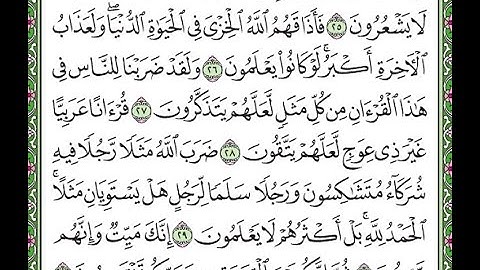 لَا يَشْعُرُونَ ٢٥ فَأَذَاقَهُمُ ٱللَّهُ ٱلْخِزْىَ فِى ٱلْحَيَوٰةِ ٱلدُّنْيَا ۖ وَلَعَذَابُ
ٱلْـَٔاخِرَةِ أَكْبَرُ ۚ لَوْ كَانُوا۟ يَعْلَمُونَ ٢٦ وَلَقَدْ ضَرَبْنَا لِلنَّاسِ فِى
هَـٰذَا ٱلْقُرْءَانِ مِن كُلِّ مَثَلٍ لَّعَلَّهُمْ يَتَذَكَّرُونَ ٢٧ قُرْءَانًا عَرَبِيًّا
غَيْرَ ذِى عِوَجٍ لَّعَلَّهُمْ يَتَّقُونَ ٢٨ ضَرَبَ ٱللَّهُ مَثَلًا رَّجُلًا فِيهِ
شُرَكَآءُ مُتَشَـٰكِسُونَ وَرَجُلًا سَلَمًا لِّرَجُلٍ هَلْ يَسْتَوِيَانِ مَثَلًا ۚ
ٱلْحَمْدُ لِلَّهِ ۚ بَلْ أَكْثَرُهُمْ لَا يَعْلَمُونَ ٢٩ إِنَّكَ مَيِّتٌ وَإِنَّهُم